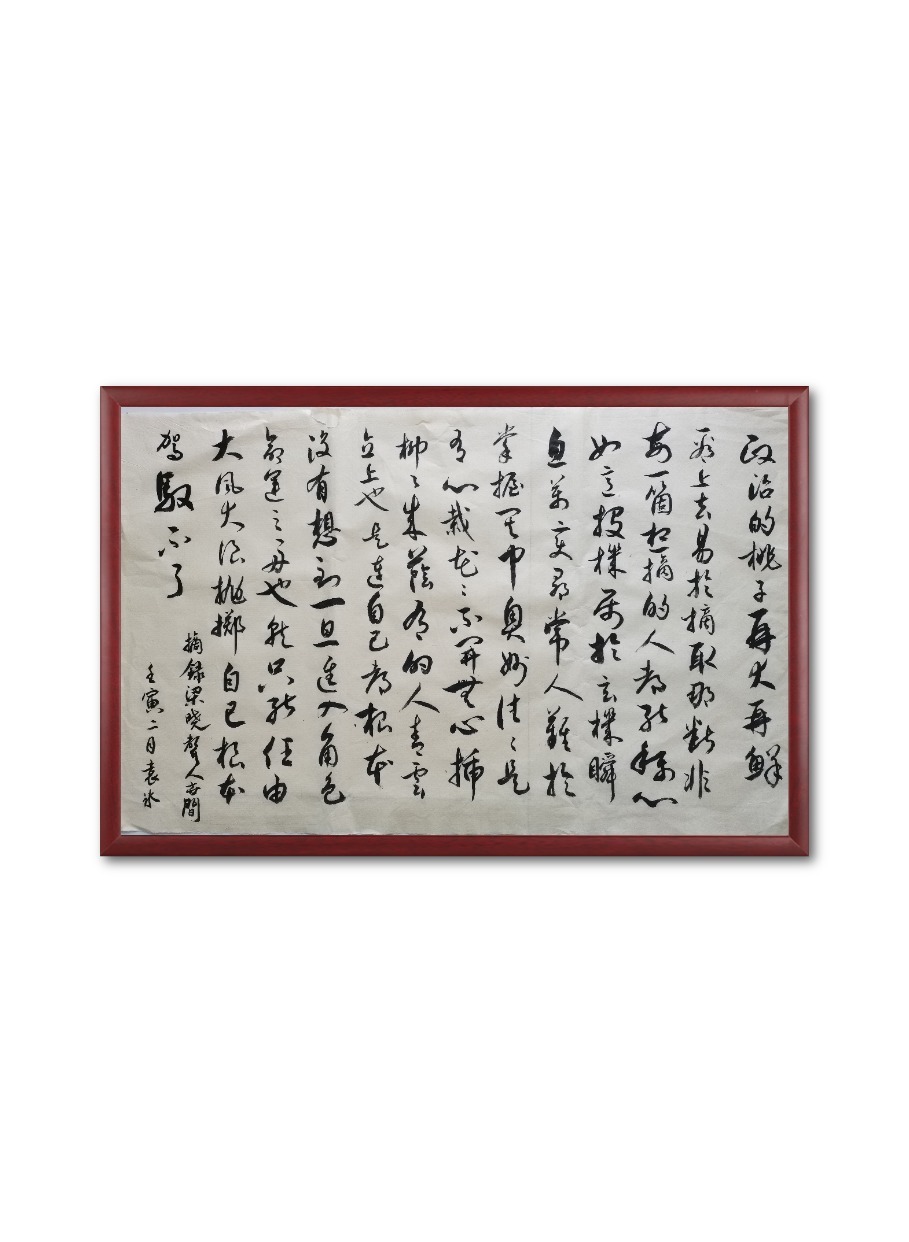 政治的桃子再大再鮮
看上去易於摘取那斷非
每一箇想摘的人都能稱心
如意投機屬於玄機瞬
息萬變尋常人難於
掌握其中奧妙往往是
有心栽花花不開無心插
柳柳成蔭有的人青雲
直上也是連自己都根本
沒有想到一旦進入角色
命運之舟也就只能任由
大風大浪拋擲自己根本
駕馭不了
摘錄梁曉聲人世間
壬寅二月袁冰